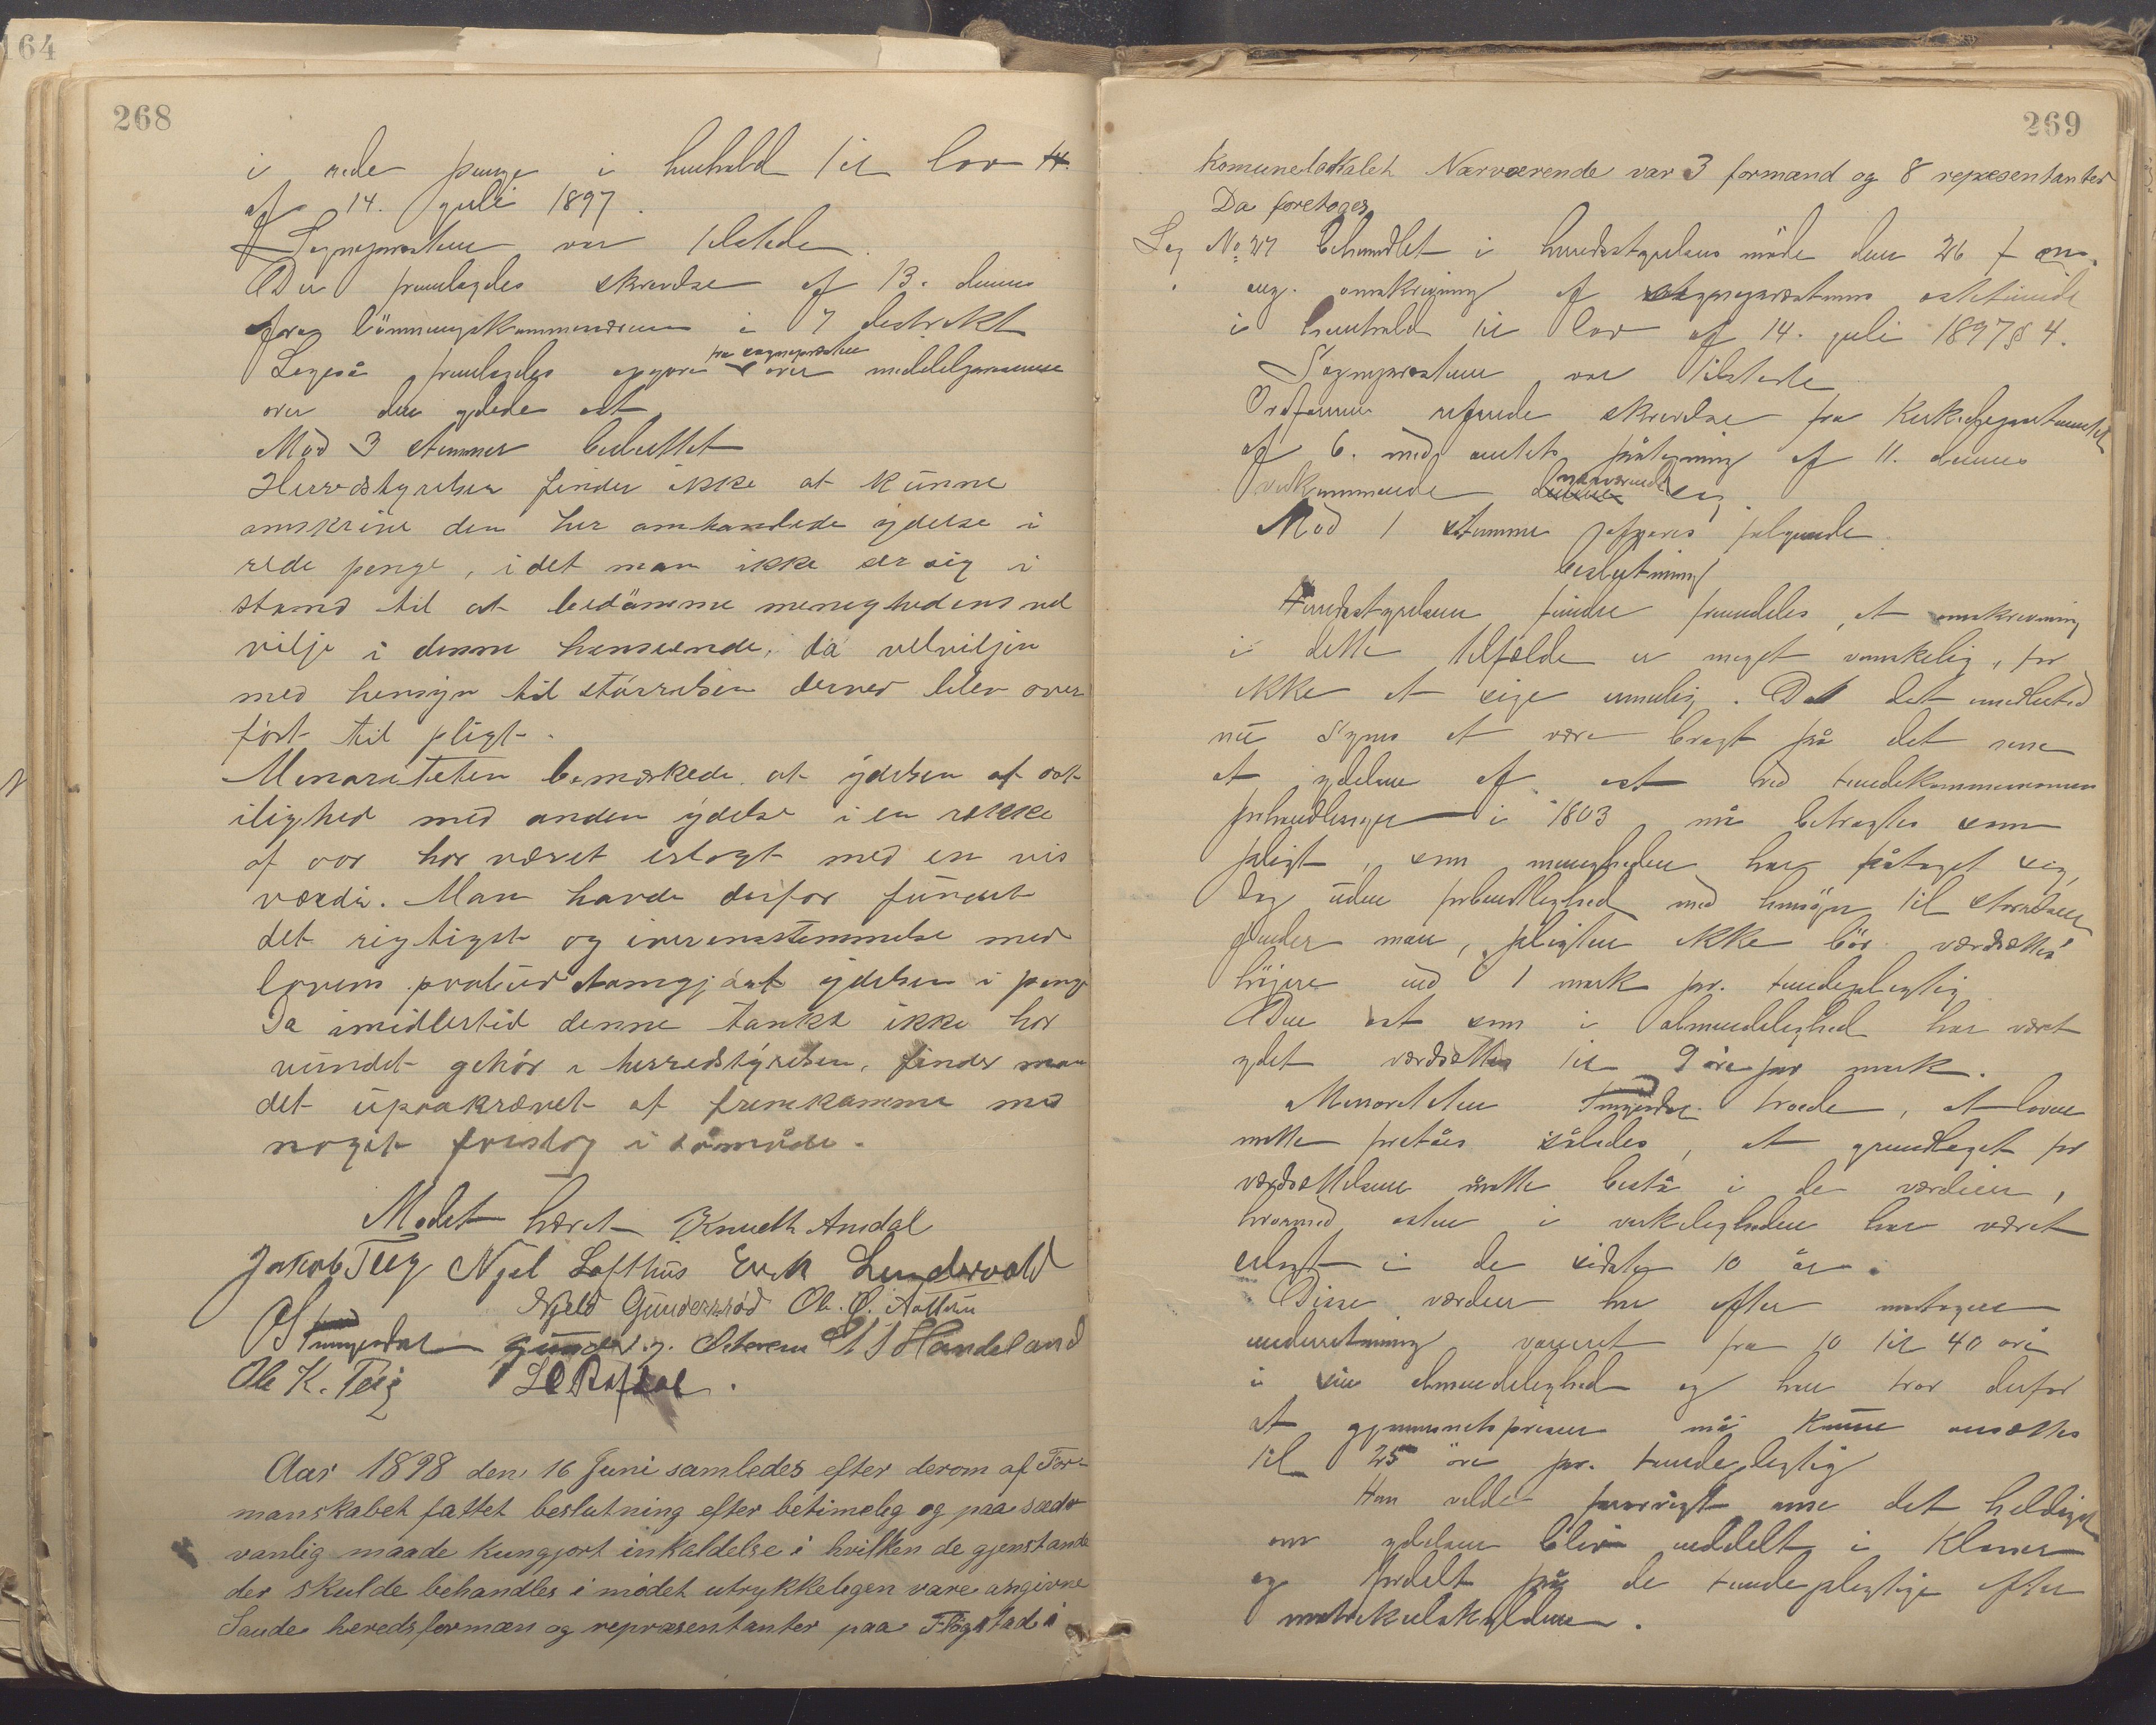 164
268
i rede penge i henhold til lov
af 14. juli 1897.
Sognepræsten var tilstede.
Der fremlagdes skrivelse af 13. dennes
fra lönningskommissionen i 7 distrikt
Ligeså fremlagdes opgave fra sognepræsten over middelpriserne
over den ydede ost
Mod 3 stemmer besluttet
Herredstyrelsen finder ikke at kunne
omskrive den her omhandlede ydelse i
rede penge, idet man ikke ser sig i
stand til at bedömme menighedens vel
vilje i denne henseende, da velviljen
med hensyn til störrelsen derved blev over
fört til pligt.
Minoriteten bemærkede at ydelsen af ost
i lighed med anden ydelse i en række
af aar har været erlagt med en vis
værdi. Man havde derfor fundet
det rigtigst og i overensstemmelse med
lovens omgjort ydelsen i penge
Da imidlertid denne tanke ikke har
vundet gehör i herredstyrelsen, finder man
det upaakrævet at fremkomme med
noget forslag i såmåde.
Mödet hævet Knudt Amdal
Jakob Teig Njel Lofthus Erik Lundervold
Njeld Gunderstöd Ol. Ö.
Gunder Handeland
Ole K. Teig
Aar 1898 den 16 Juni samledes efter derom af For-
manskabet fattet beslutning efter betimelig og paa sædv
vanlig maade kungjort inkaldelse i hvilken de gjenstande
der skulde behandles i mödet utrykkelegen vare angivne
Saude heredsformæn og repræsentanter paa Fløgstad i
269
Komunelokalet Nærværende var 3 formænd og 8 representanter
Da foretoges
Sag No 27 behandlet i herredsstyrelsens möde den 26 f. m.
ang. omskrivning af sognepræstens ostetiende
i henhold til lov af 14. juli 1897 § 4.
Sognepræsten var tilstede
Ordföreren refererede skrivelse fra Kirkedepartementet
af 6. med amtets påtegning af 11. dennes
vedkommende nærværende sag
Mod 1 stemme afgaves fölgende
beslutning
Herredsstyrelsen finder fremdeles, at omskrivning
i dette tilfælde er meget vanskelig, for
ikke at sige umulig. Da det imidlertid
nu synes at være bragt på det rene
at ydelsen af ost ved tiendekommissionens
forhandlinger i 1803 må betragtes som
pligt, som menigheden har påtaget sig,
dog uden forbindtlighed med hensyn til störrelsen
finder man, pligten ikke bör værdsættes
höjere end 1 mark pr. tiendepligtig
Den ost som i almindelighed har været
ydet værdsættes til 9 öre pr mark.
Minoriteten troede, at loven
måtte forståes således, at grundlaget for
værdsættelsen måtte bestå i de værdier,
hvormed osten i virkeligheden har været
erlagt i de sidste 10 år.
Disse værdier har efter modtagen
underretning varieret fra 10 til 40 öre
i sin almindelighed og han tror derfor
at gjennemsnitsprisen må kunne ansættes
til 25 öre pr. tiendepligtig
Han vilde forövrigt anse det heldigst
om ydelsen blev inddelt i Klasser
og fordelt på de tiendepligtige efter
matrikulskylden.